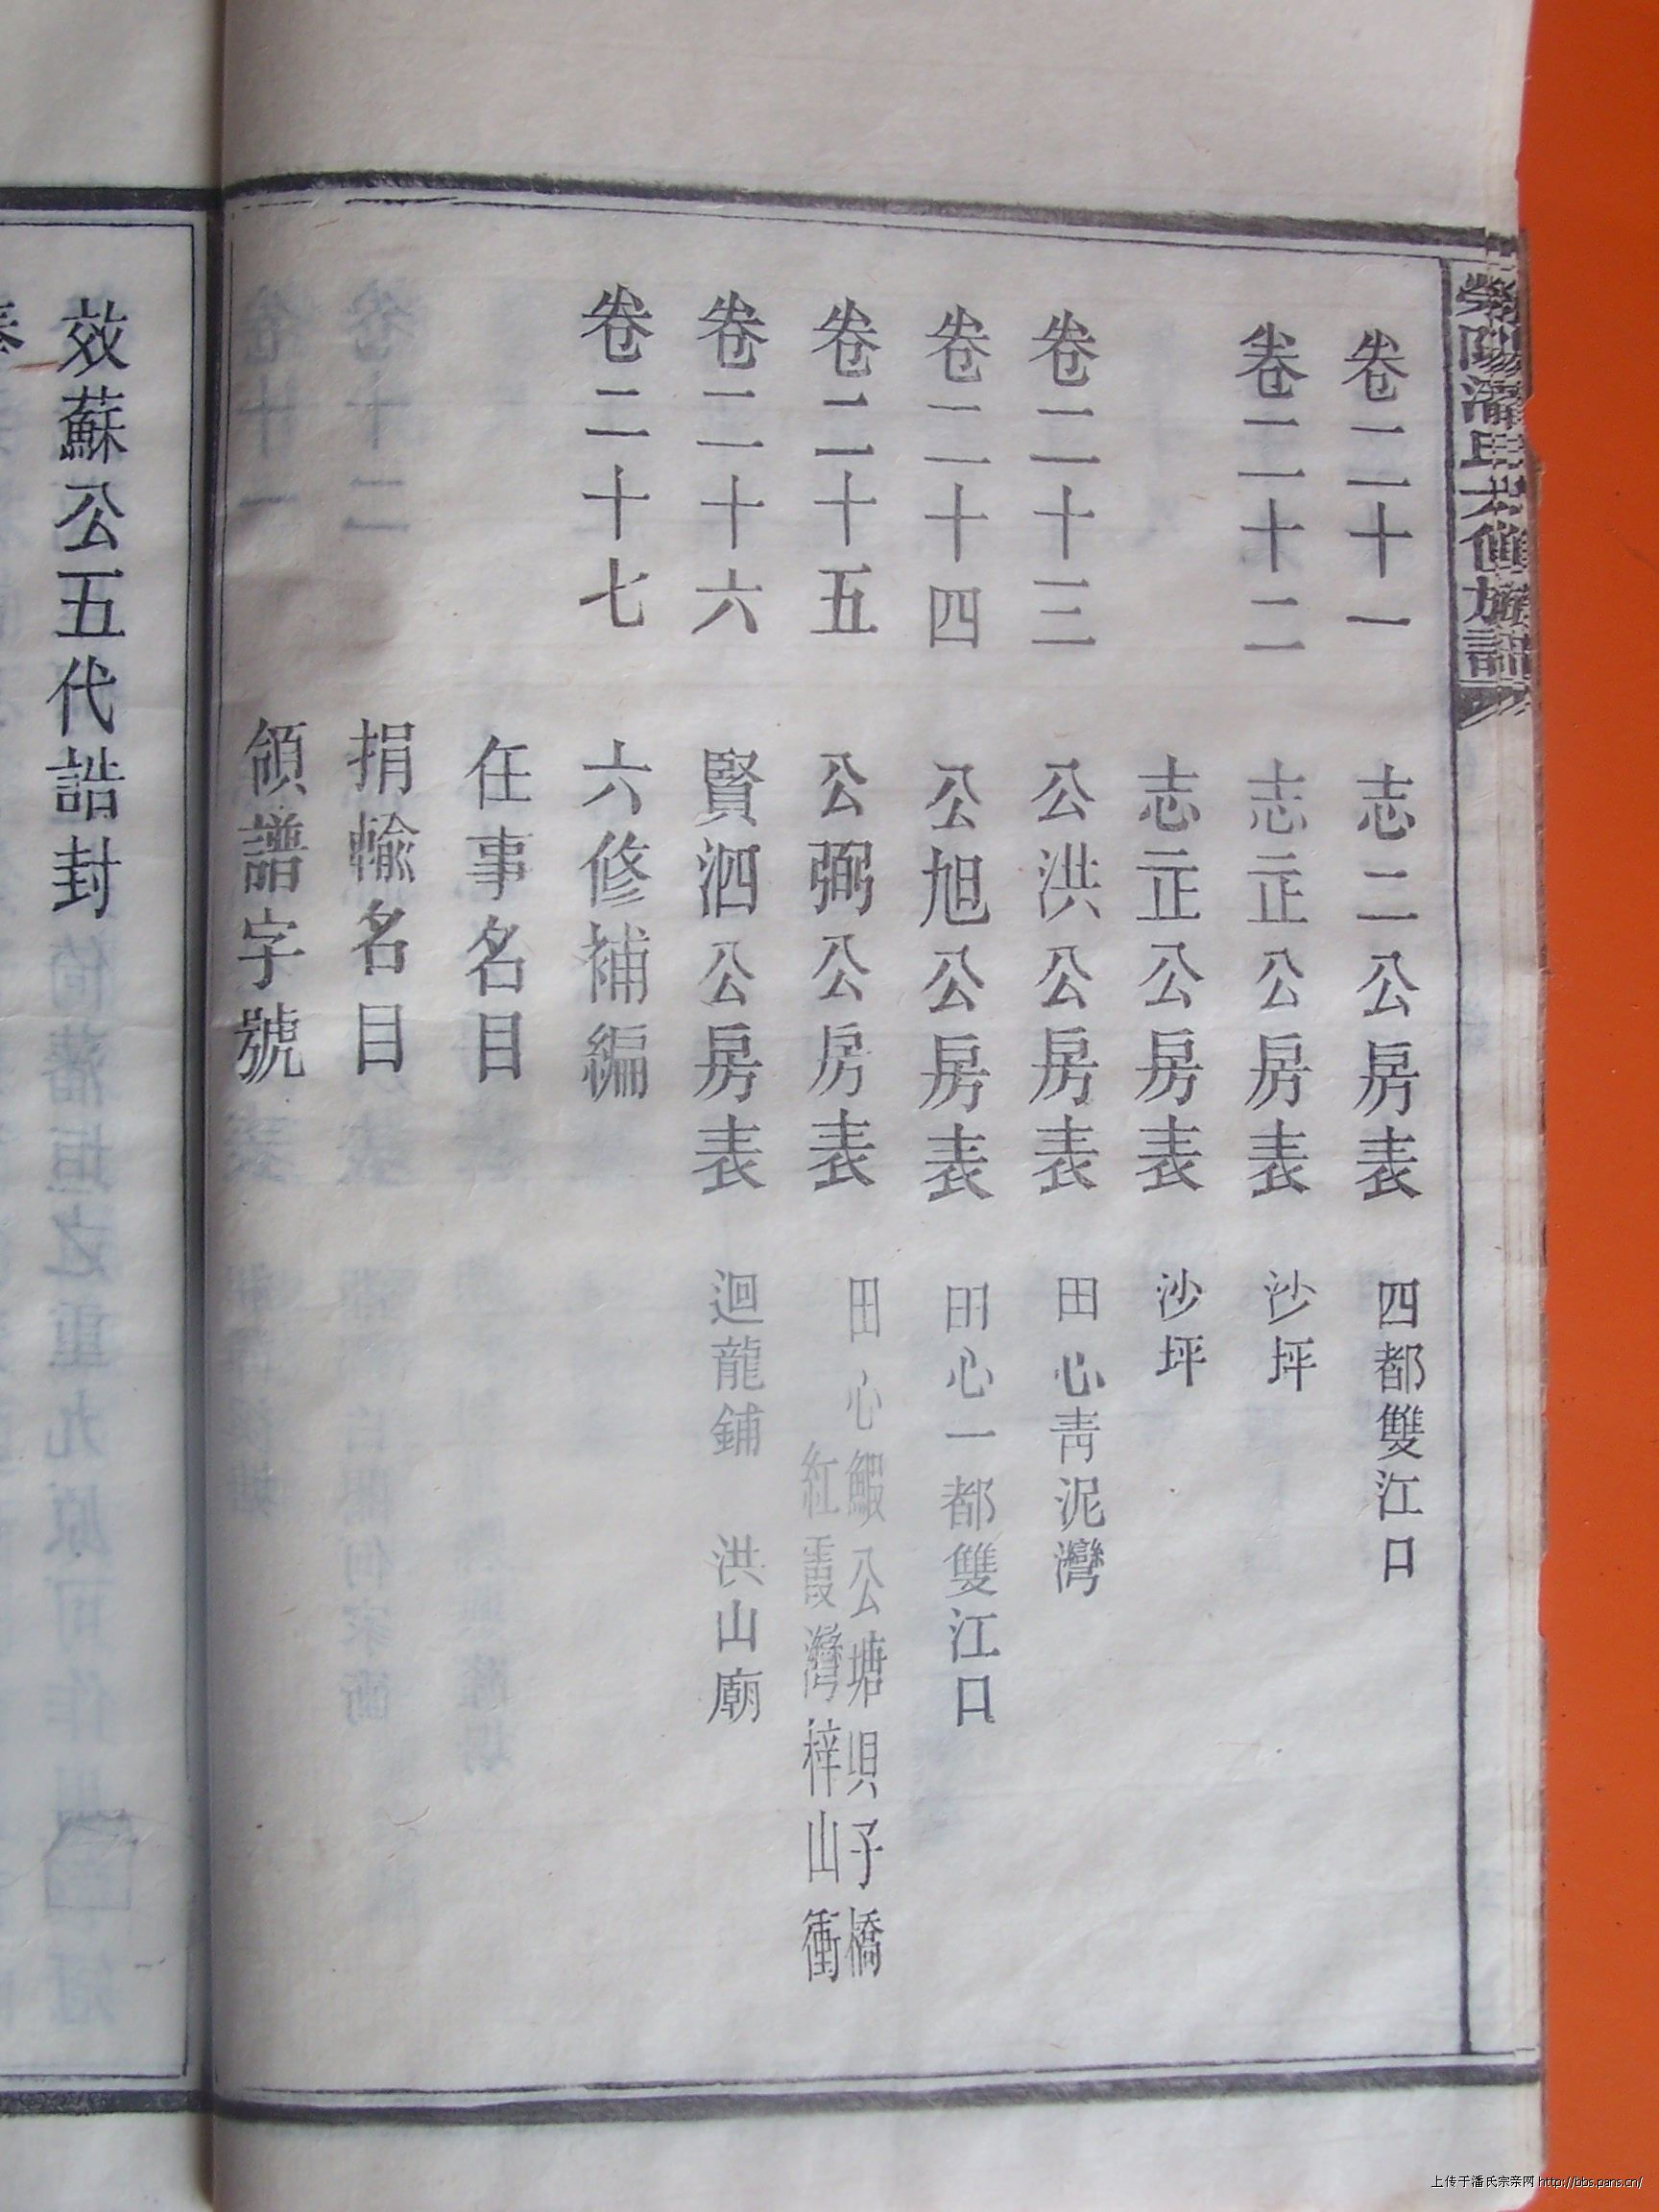 滎陽潘氏六修族譜
卷二十一 志二公房表 四都雙江口
卷二十二 志正公房表 沙坪
志正公房表 沙坪
卷二十三 公洪公房表 田心青泥灣
卷二十四 公旭公房表 田心一都雙江口
卷二十五 公弼公房表 田心鰕公塘垻子橋
紅霞灣梓山衝
卷二十六 賢泗公房表 迴龍鋪 洪山廟
卷二十七 六修補編
任事名目
捐輸名目
領譜字號
效蘇公五代誥封
上传于潘氏宗亲网 http://bbs.pans.cn/